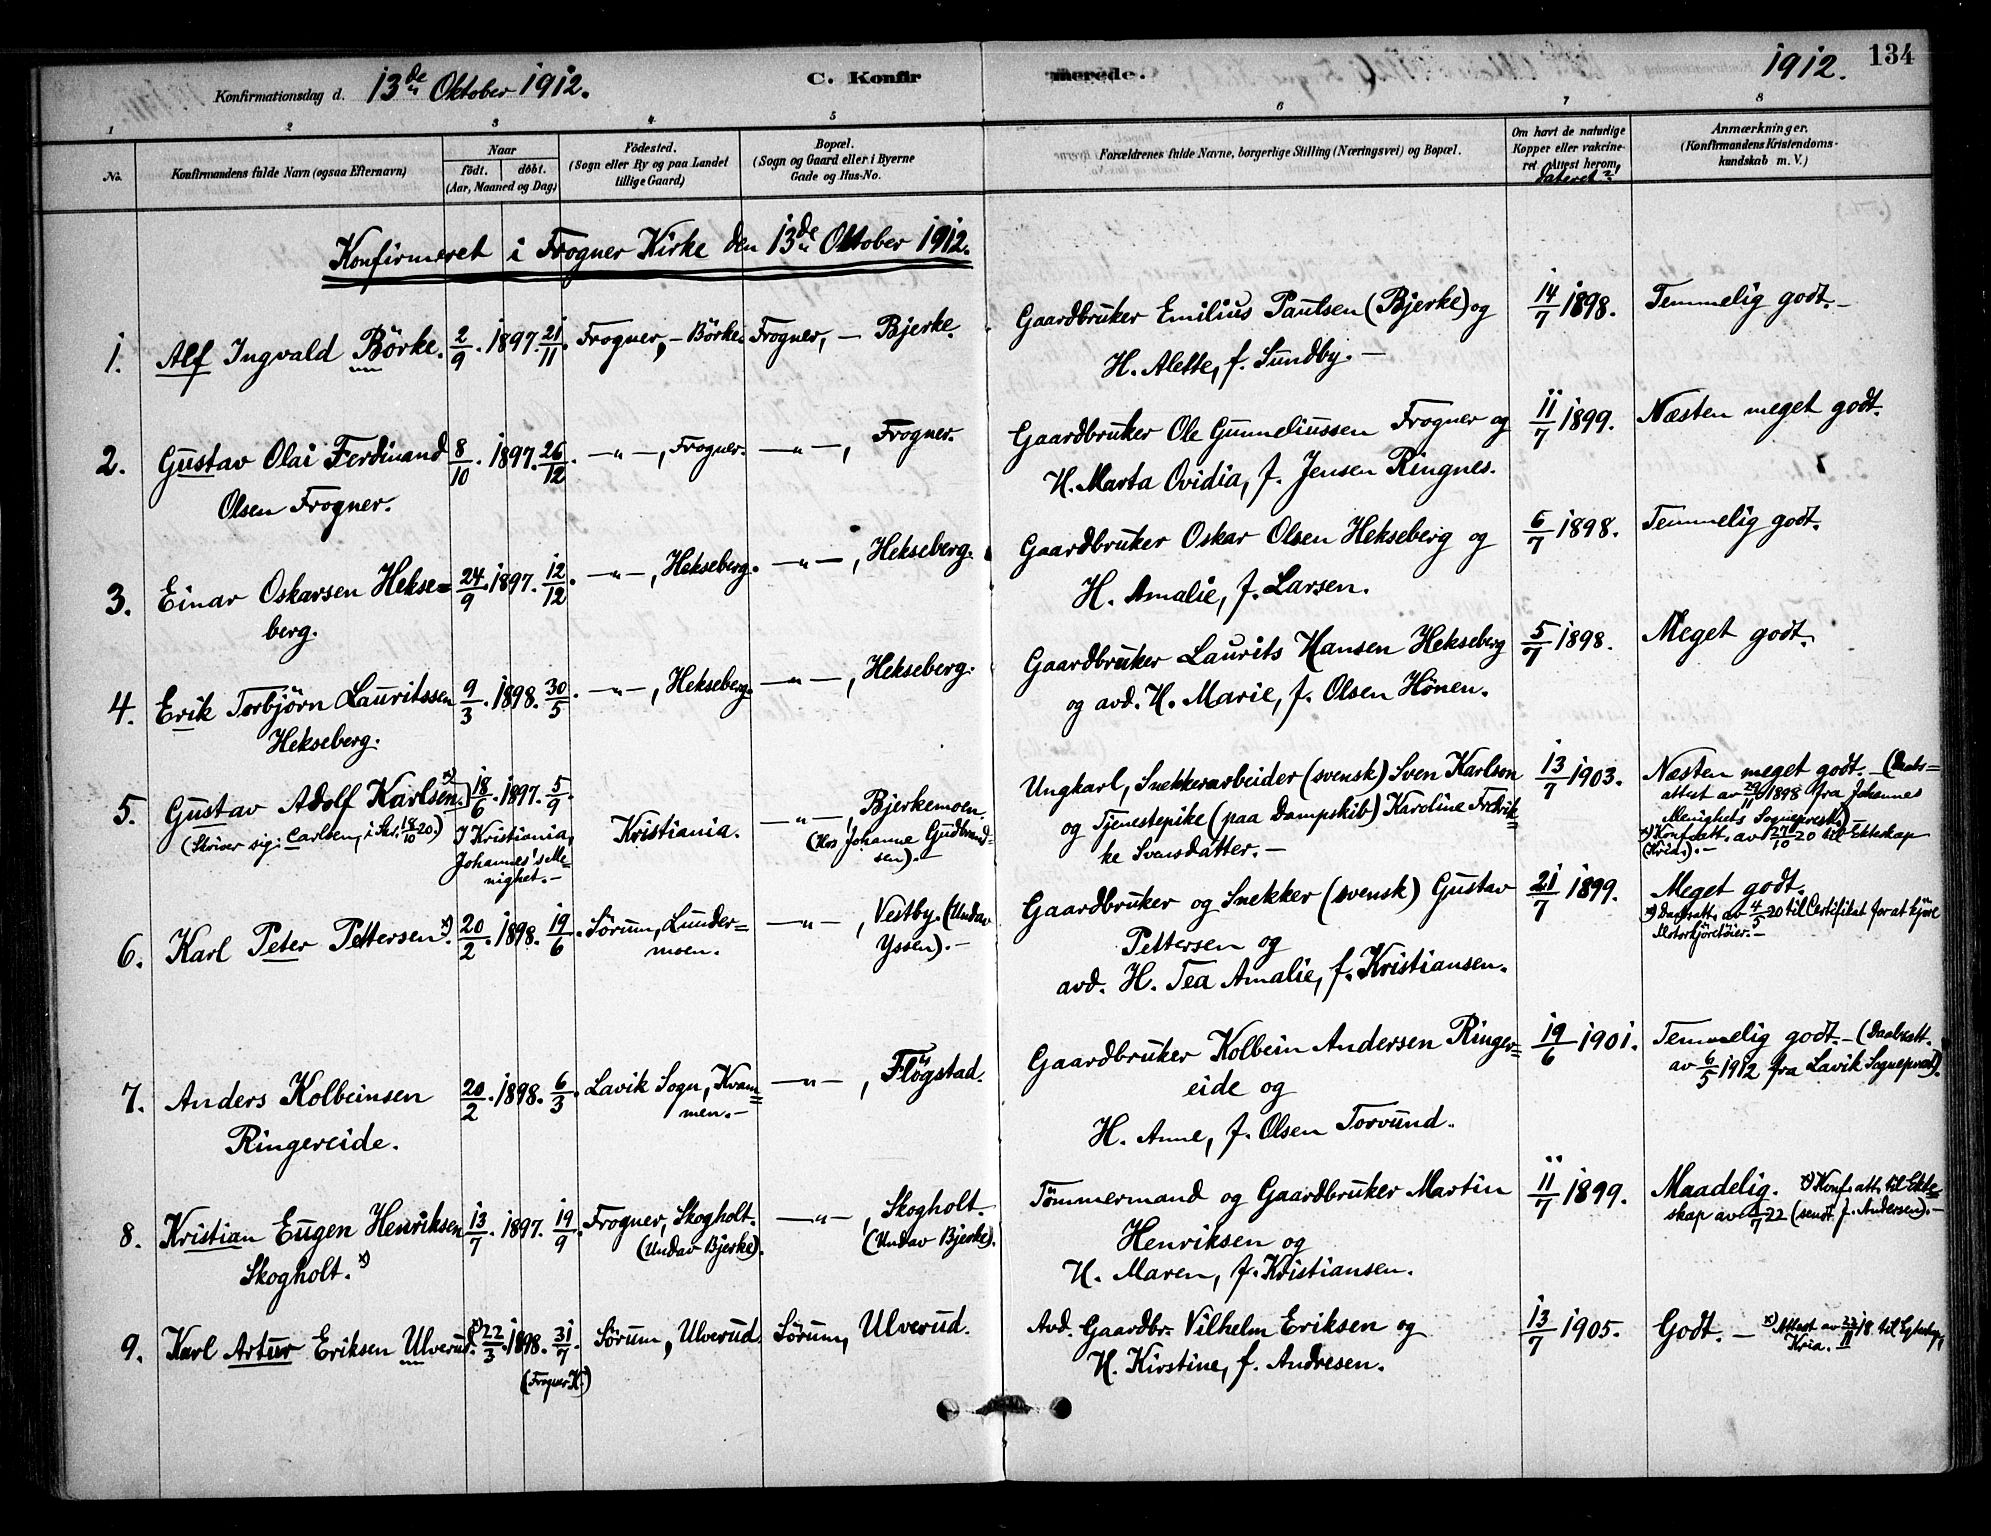 Konfirmationsdag d. 13de Oktober 1912. C. Konfir merede. 1912. 134
1 2 3 4 5 6 7 8
No. Konfirmandens fulde Navn (ogsaa Efternavn) Naar født. døbt. (Aar, Maaned og Dag)
Födested. (Sogn eller By og paa Landet tillige Gaard)
Bopæl. (Sogn og Gaard eller i Byerne Gade og Hus-No.
Forældrenes fulde Navne, borgerlige Stilling (Næringsvei) og Bopæl.
Om havt de naturlige Kopper eller vakcineret. Attest herom, dateret?
Anmærkninger. (Konfirmandens Kristendomskundskab m. V.)
Konfirmeret i Frogner Kirke den 13de Oktober 1912.
1. Alf Ingvald Börke. 2/9. 1897. 21/11. Frogner, - Börke. Frogner, - Bjerke. Gaardbruker Emilius Paulsen (Bjerke) og 14/7 1898. Temmelig godt. -
H. Alette, f. Sundby. -
2. Gustav Olai Ferdinand 8/10. 1897. 26/12. -"-, Frogner. -"-, Frogner. Gaardbruker Ole Gunneliussen Frogner og 11/7 1899. Næsten meget godt.
Olsen Frogner. H. Marta Ovidia, f. Jensen Ringnes.
3. Einar Oskarsen Hekse= 24/9. 1897. 12/12. -"-, Hekseberg. -"-, Hekseberg. Gaardbruker Oskar Olsen Hekseberg og 6/7 1898. Temmelig godt.
berg. H. Amalie, f. Larsen.
4. Erik Torbjörn Lauritssen 9/3. 1898. 30/5. -"-, Hekseberg. -"-, Hekseberg. Gaardbruker Laurits Hansen Hekseberg 5/7 1898. Meget godt.
Hekseberg. og avd. H. Marie, f. Olsen Hönen.
5. Gustav Adolf Karlsen. x) 18/6. 1897. 5/9. Kristiania. -"-, Bjerkemoen. Ungkarl, Snekkerarbeider (svensk) Sven Karlson 13/7 1903. Næsten meget godt. - (Daabs=
(Skriver sig: Carlsen, i Skr. 18/10 20.) I Kristiania, (Hos Johanne Gudbrand= og Tjenestepike (paa Dampskib) Karoline Fredrik= attest av 29/11 1898 fra Johannes
Johannes's Me= sen). - ke Svensdatter. - Menigheds Sogneprest.)
nighet. - x) Konf.att. av 27/10 20 til Ekteskap
(Kria.). -
6. Karl Peter Pettersen. x) 20/2. 1898. 19/6. Sörum, Lunder= -"-, Vestby. (Undav Gaardbruker og Snekker (svensk) Gustav 21/7 1899. Meget godt.
moen. Yssen). - Pettersen og x) Daabsatt. av 4/5 20 til Certifikat for at kjöre
avd. H. Tea Amalie, f. Kristiansen. Motorkjöretöier. -
7. Anders Kolbeinsen 20/2. 1898. 6/3. Lavik Sogn, Kvam= -"-, Flögstad. Gaardbruker Kolbein Andersen Ringer= 19/6 1901. Temmelig godt. - (Daabsatt.
Ringereide. men. - eide og av 6/5 1912 fra Lavik Sogneprest).
H. Anne, f. Olsen Torvund.
8. Kristian Eugen Henriksen 13/7. 1897. 19/9. Frogner, Skogholt. -"-, Skogholt. Tömmermand og Gaardbruker Martin 11/7 1899. Maadelig. x) Konf.att. til Ekte=
Skogholt. x) (Undav Bjerke). (Undav Bjerke). Henriksen og skap av /7 22 (sendt f. Andersen). -
H. Maren, f. Kristiansen.
9. Karl Artur Eriksen Ulverud. x) 22/3. 1898. 31/7. Sörum, Ulverud. Sörum, Ulverud. Avd. Gaardbr. Vilhelm Eriksen og 13/7 1905. Godt. - x) Attest av 22/11 18 til
(Frogner K.) H. Kirstine, f. Andresen. Kria.